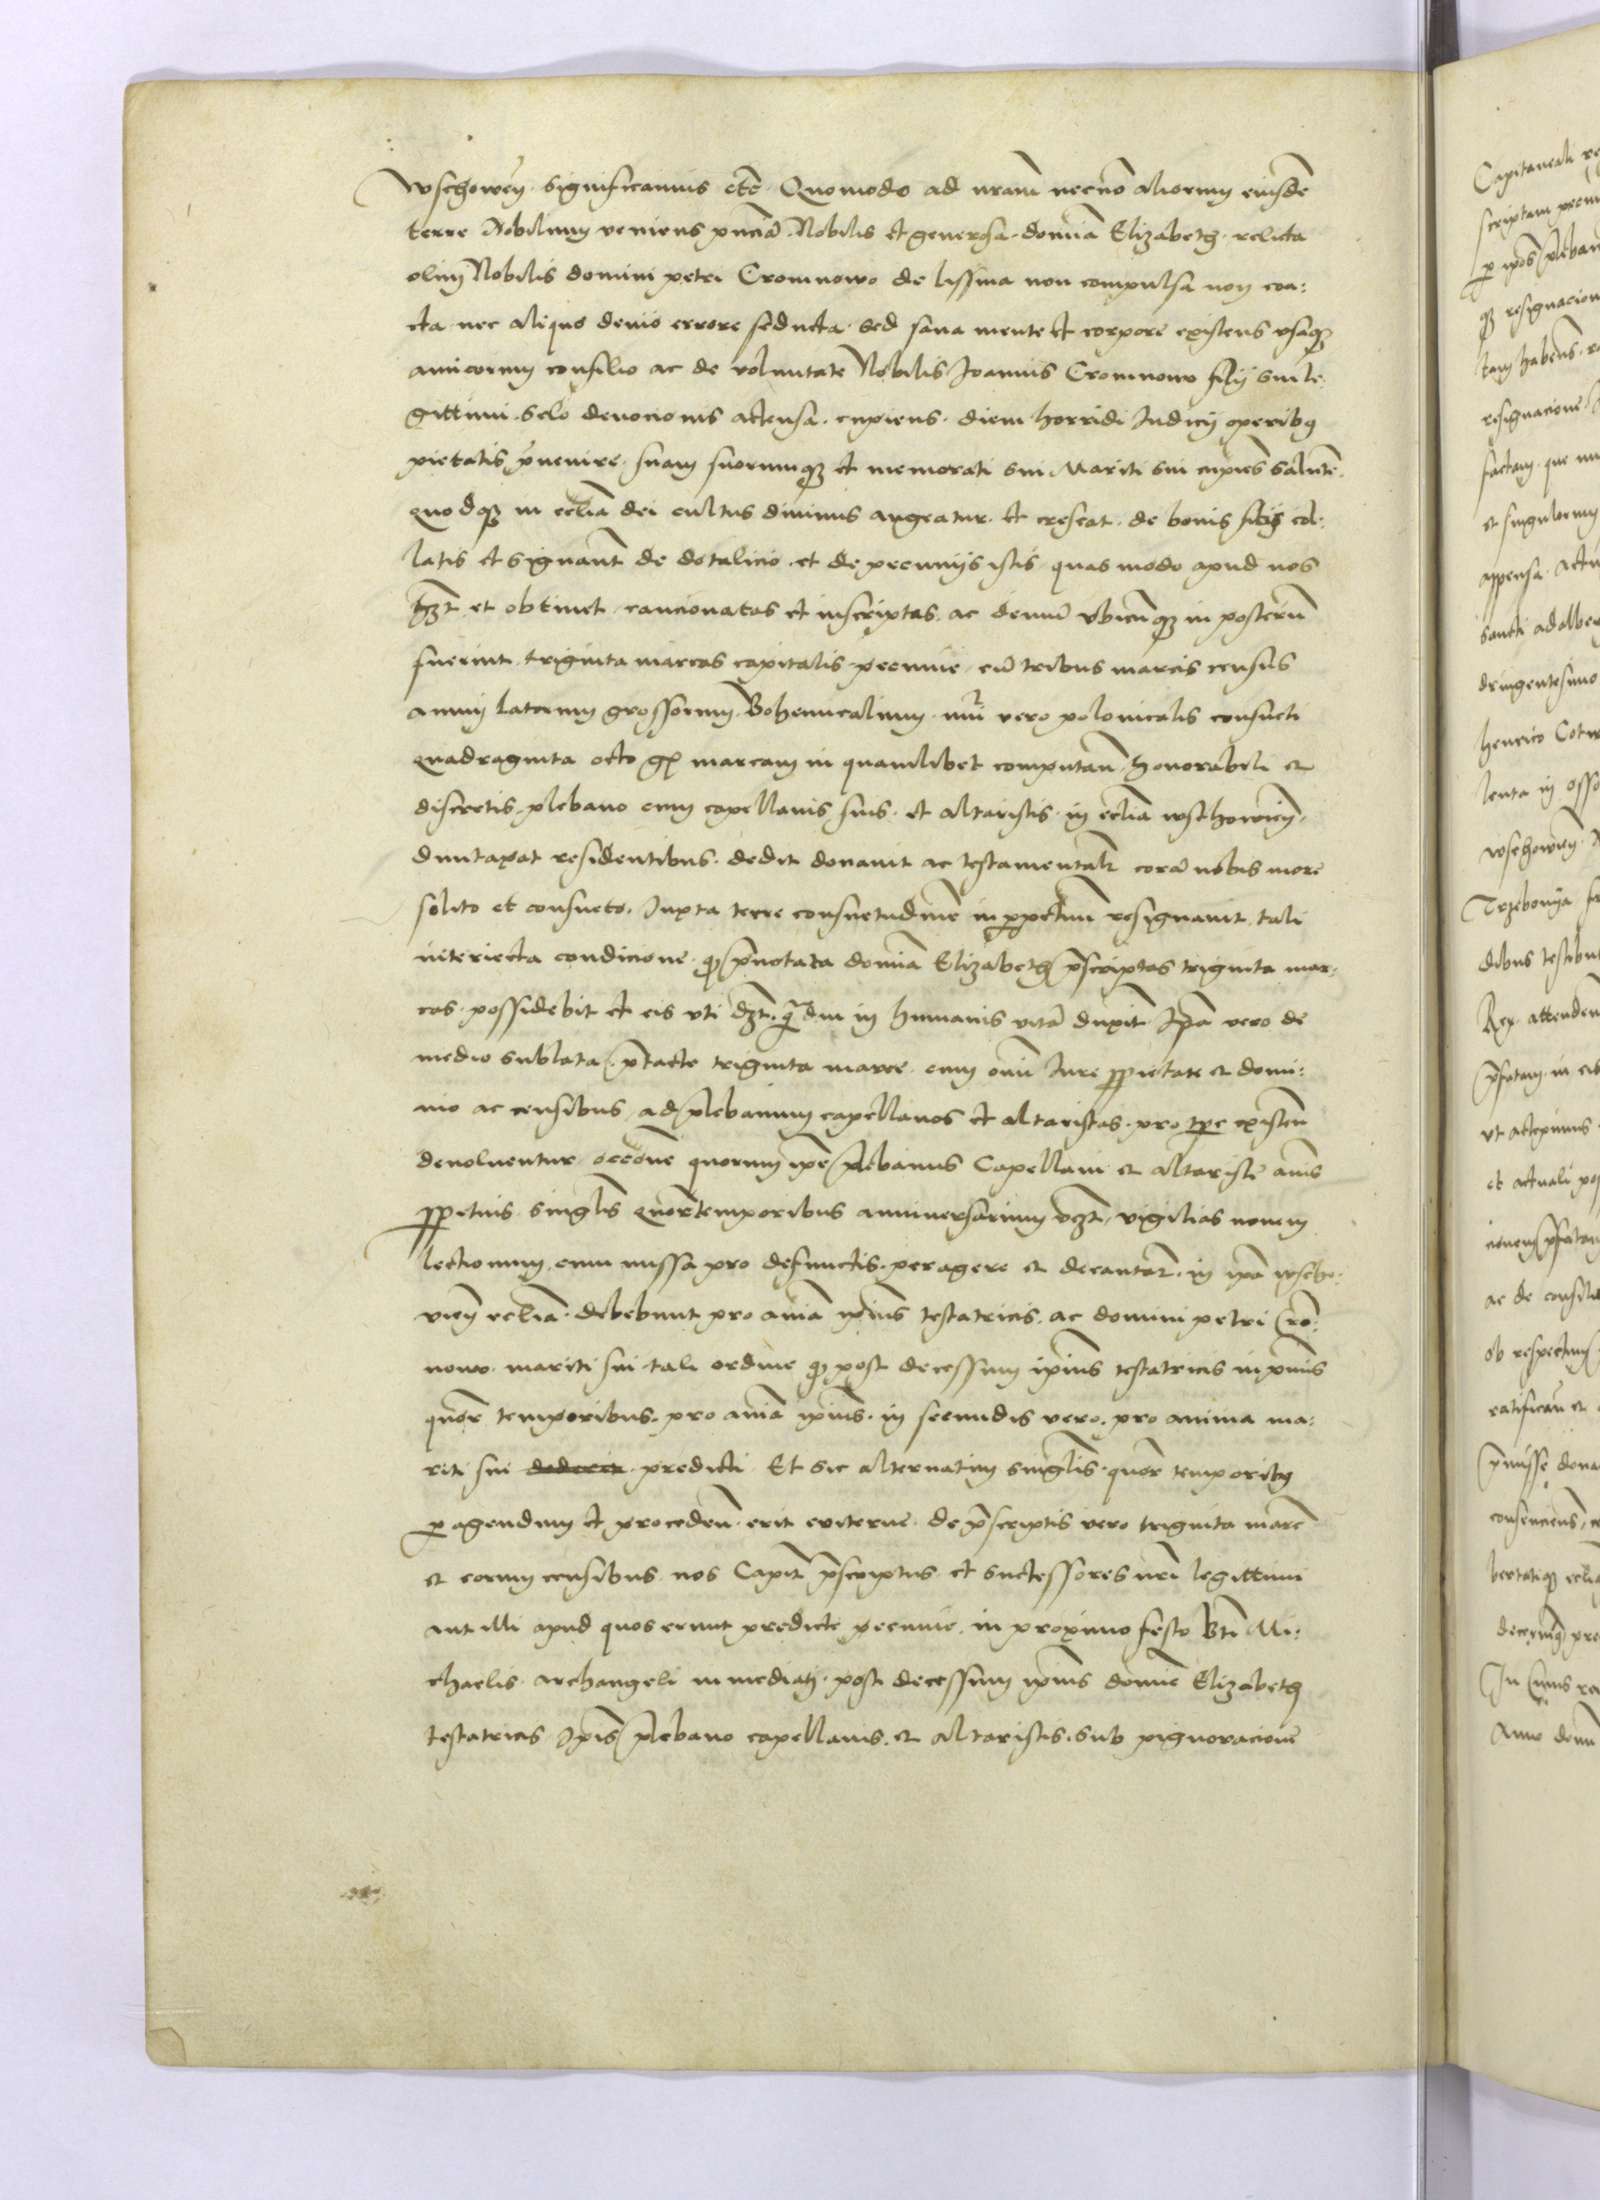 Wschowen̄ significamus etc̄ Quomodo ad nr̄am necno͞ aliorum eiusde͞
terre Nobilium veniens pn̄cia͞ Nobilis et generosa don̄ia Elizabeth relicta
olim Nobilis domini petri Cromnowo de lissina non compulsa non coa:
cta nec aliquo deuio errore seducta sed sana mente et corpore existens vsaqȝ
amicorum consilio ac de voluntate Nobilis Joannis Cromnow filij sui le
gittimi selo deuocionis actensa cupiens diem horridi Iudicij operibꝯ
pietatis p̄uenire suam suorumqȝ et memorati sui Mariti sui cupie͞s salute͞
quodqȝ in ecl̄ia dei cultus diuinus augeatur et crescat de bonis sibi col:
latis et signan̄t de dotalicio et de pecunijs istis quas modo apud nos
hȝt et obtinet caucionatas et inscriptas ac demu͞ vbicu͞qȝ in posteru͞
fuerint triginta marcas capitalis pecunie cu͞ tribus marcis census
annuj latorum grossorum Bohemicalium nu͞i vero polonicalis consueti
quadraginta octo gꝭ marcam in quamlibet computan̄ honorabili et
discretis plebano cum capellanis suis et altaristis in ecl̄ia wschowien̄
duntaxat residentibus dedit donauit ac testamentalr̄ cora͞ nobis more
solito et consueto Iuxta terre consuetudine͞ in ꝑpetuu͞ resignauit tali
interiecta condicione ꝙ p̄notata don̄ia Elizabeth p̄scriptas triginta mar:
cas possidebit et eis vti dȝt q͞ȝdiu in humanis vita͞ duxit Ip̄a vero de
medio sublata p̄tacte triginta marce cum om̄i Iure ꝓprietate et domi:
nio ac censibus ad plebanum capellanos et altaristas pro tp̄e existen̄
deuoluentur occo͞ne quorum ip̄e plebanus Capellani et altariste an̄is
ꝑpetuis singl̄is quor̄temporibus anniuersarium vȝt vigilias nouem
lectionum cum missa pro defunctis peragere et decantar̄ in ip̄a wscho:
vien̄ ecl̄ia debebunt pro ani͞a ip̄ius testatricis ac domini petri Cro͞:
nowo mariti sui tali ordine ꝙ post decessum ip̄ius testatricis in p̄mis
quor̄ temporibus pro ani͞a ip̄ius in secundis vero pro anima ma:
riti sui predicti Et sic alternatim singl̄is quor̄ temporibꝯ
ꝑagendum et proceden̄ erit euiterne de p̄scriptis vero triginta marc̄
et eorum censibus nos Capit̄ p̄scriptus et successores nr̄i legittimi
aut illi apud quos erunt predicte pecunie in proximo festo bt̄i Mi:
chaelis archangeli immediat̄ post decessum ip̄ius don̄ie Elizabeth
testatricis Ip̄is plebano capellanis et altaristis sub pignoracione͞
Capitaneali
scriptam
ꝑ ip̄os plebano
qȝ resignacion
tam habens
resignacione
factam que
et singulorum
appensa Actu
sancti adalber
dringentesimo
henrico Cotw
wschowien̄
Trzebonya
dibus testibus
Rex attenden
p̄fatam in eis
vt accepimus
et actuali pos
cionem p̄fatam
ac de consilio
ob respectum
ratifican̄ et
p̄misse dona
consenciens
bertatiqȝ ecl̄ia
In Cuius rei
Anno domi